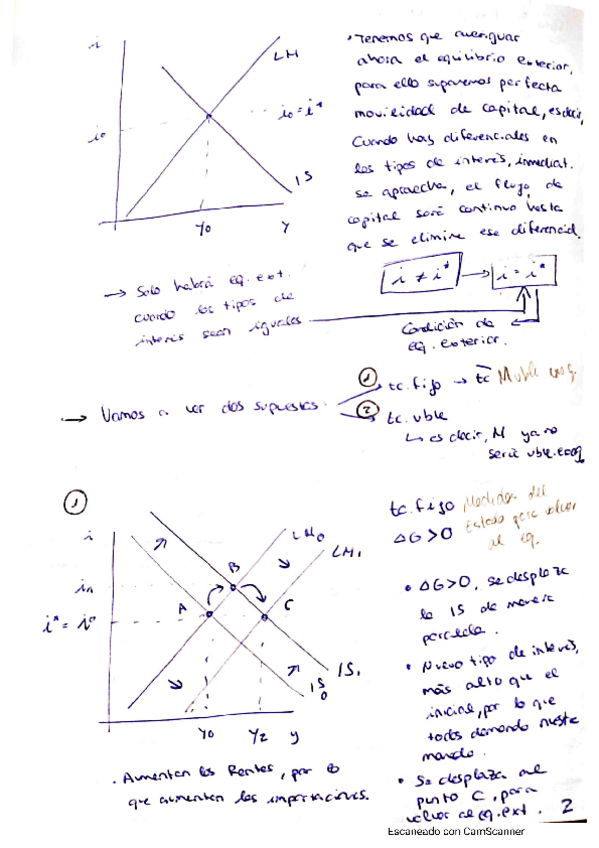 i
LM
i₀ = i*
i₀
IS
Y₀
Y
• Tenemos que averiguar
ahora el equilibrio exterior,
para ello suponemos perfecta
movilidad de capital, es decir,
Cuando hay diferenciales en
los tipos de interés, inmediat.
se aprovecha, el flujo de
capital será continuo hasta
que se elimine ese diferencial.
→ Solo habrá eq. ext.
cuando los tipos de
interés sean iguales
i ≠ i* → i = i*
Condición de
eq. exterior.
→ Vamos a ver dos supuestos:
① tc. fijo → tc M vble
② tc. vble
↳ es decir, M ya no
será vble. exog.
①
i
LM₀
LM₁
B
A
C
i* = i⁰
IS₁
IS₀
Y₀
Y₂
y
• Aumentan las Rentas, por
que aumentan las importaciones.
tc. fijo Medidas del
Estado para volver
al eq.
ΔG > 0
• ΔG > 0, se desplaza
la IS de manera
paralela.
• Nuevo tipo de interés,
más alto que el
inicial, por lo que
todos demanda nuestra
moneda.
• Se desplaza al
punto C, para
volver al eq. ext.
2
Escaneado con CamScanner